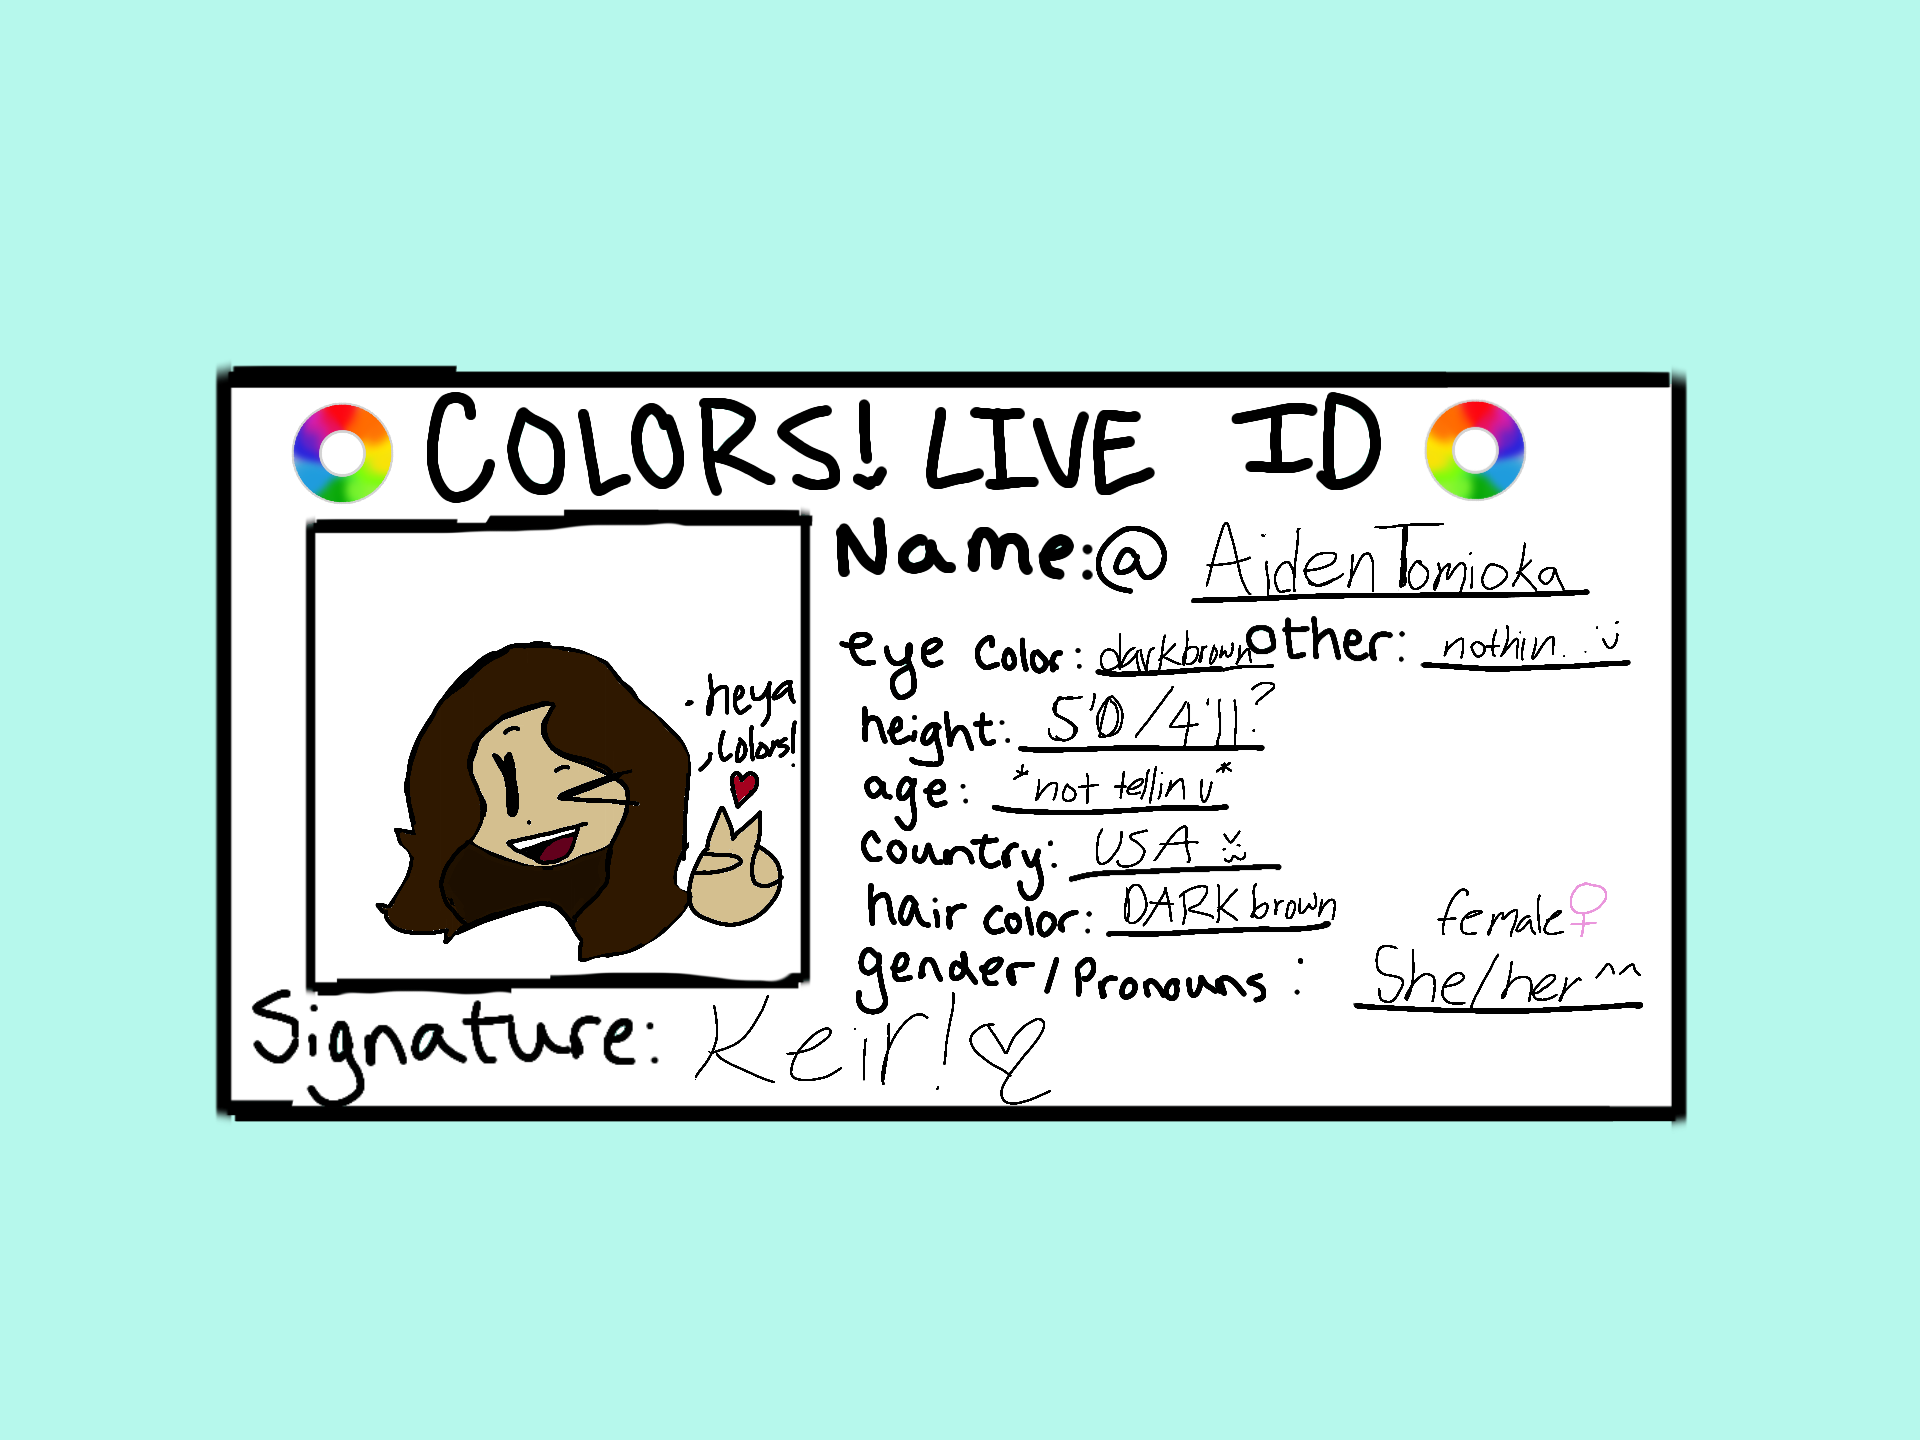 COLORS! LIVE ID
Name:@ AidenTomioka
eye color: darkbrown other: nothin..
heya
,Colors!
height: 5'0/4'11?
age: *not tellin u*
country: USA
hair color: DARK brown
female♀
gender/Pronouns : She/her ^^
Signature: Keir!♡